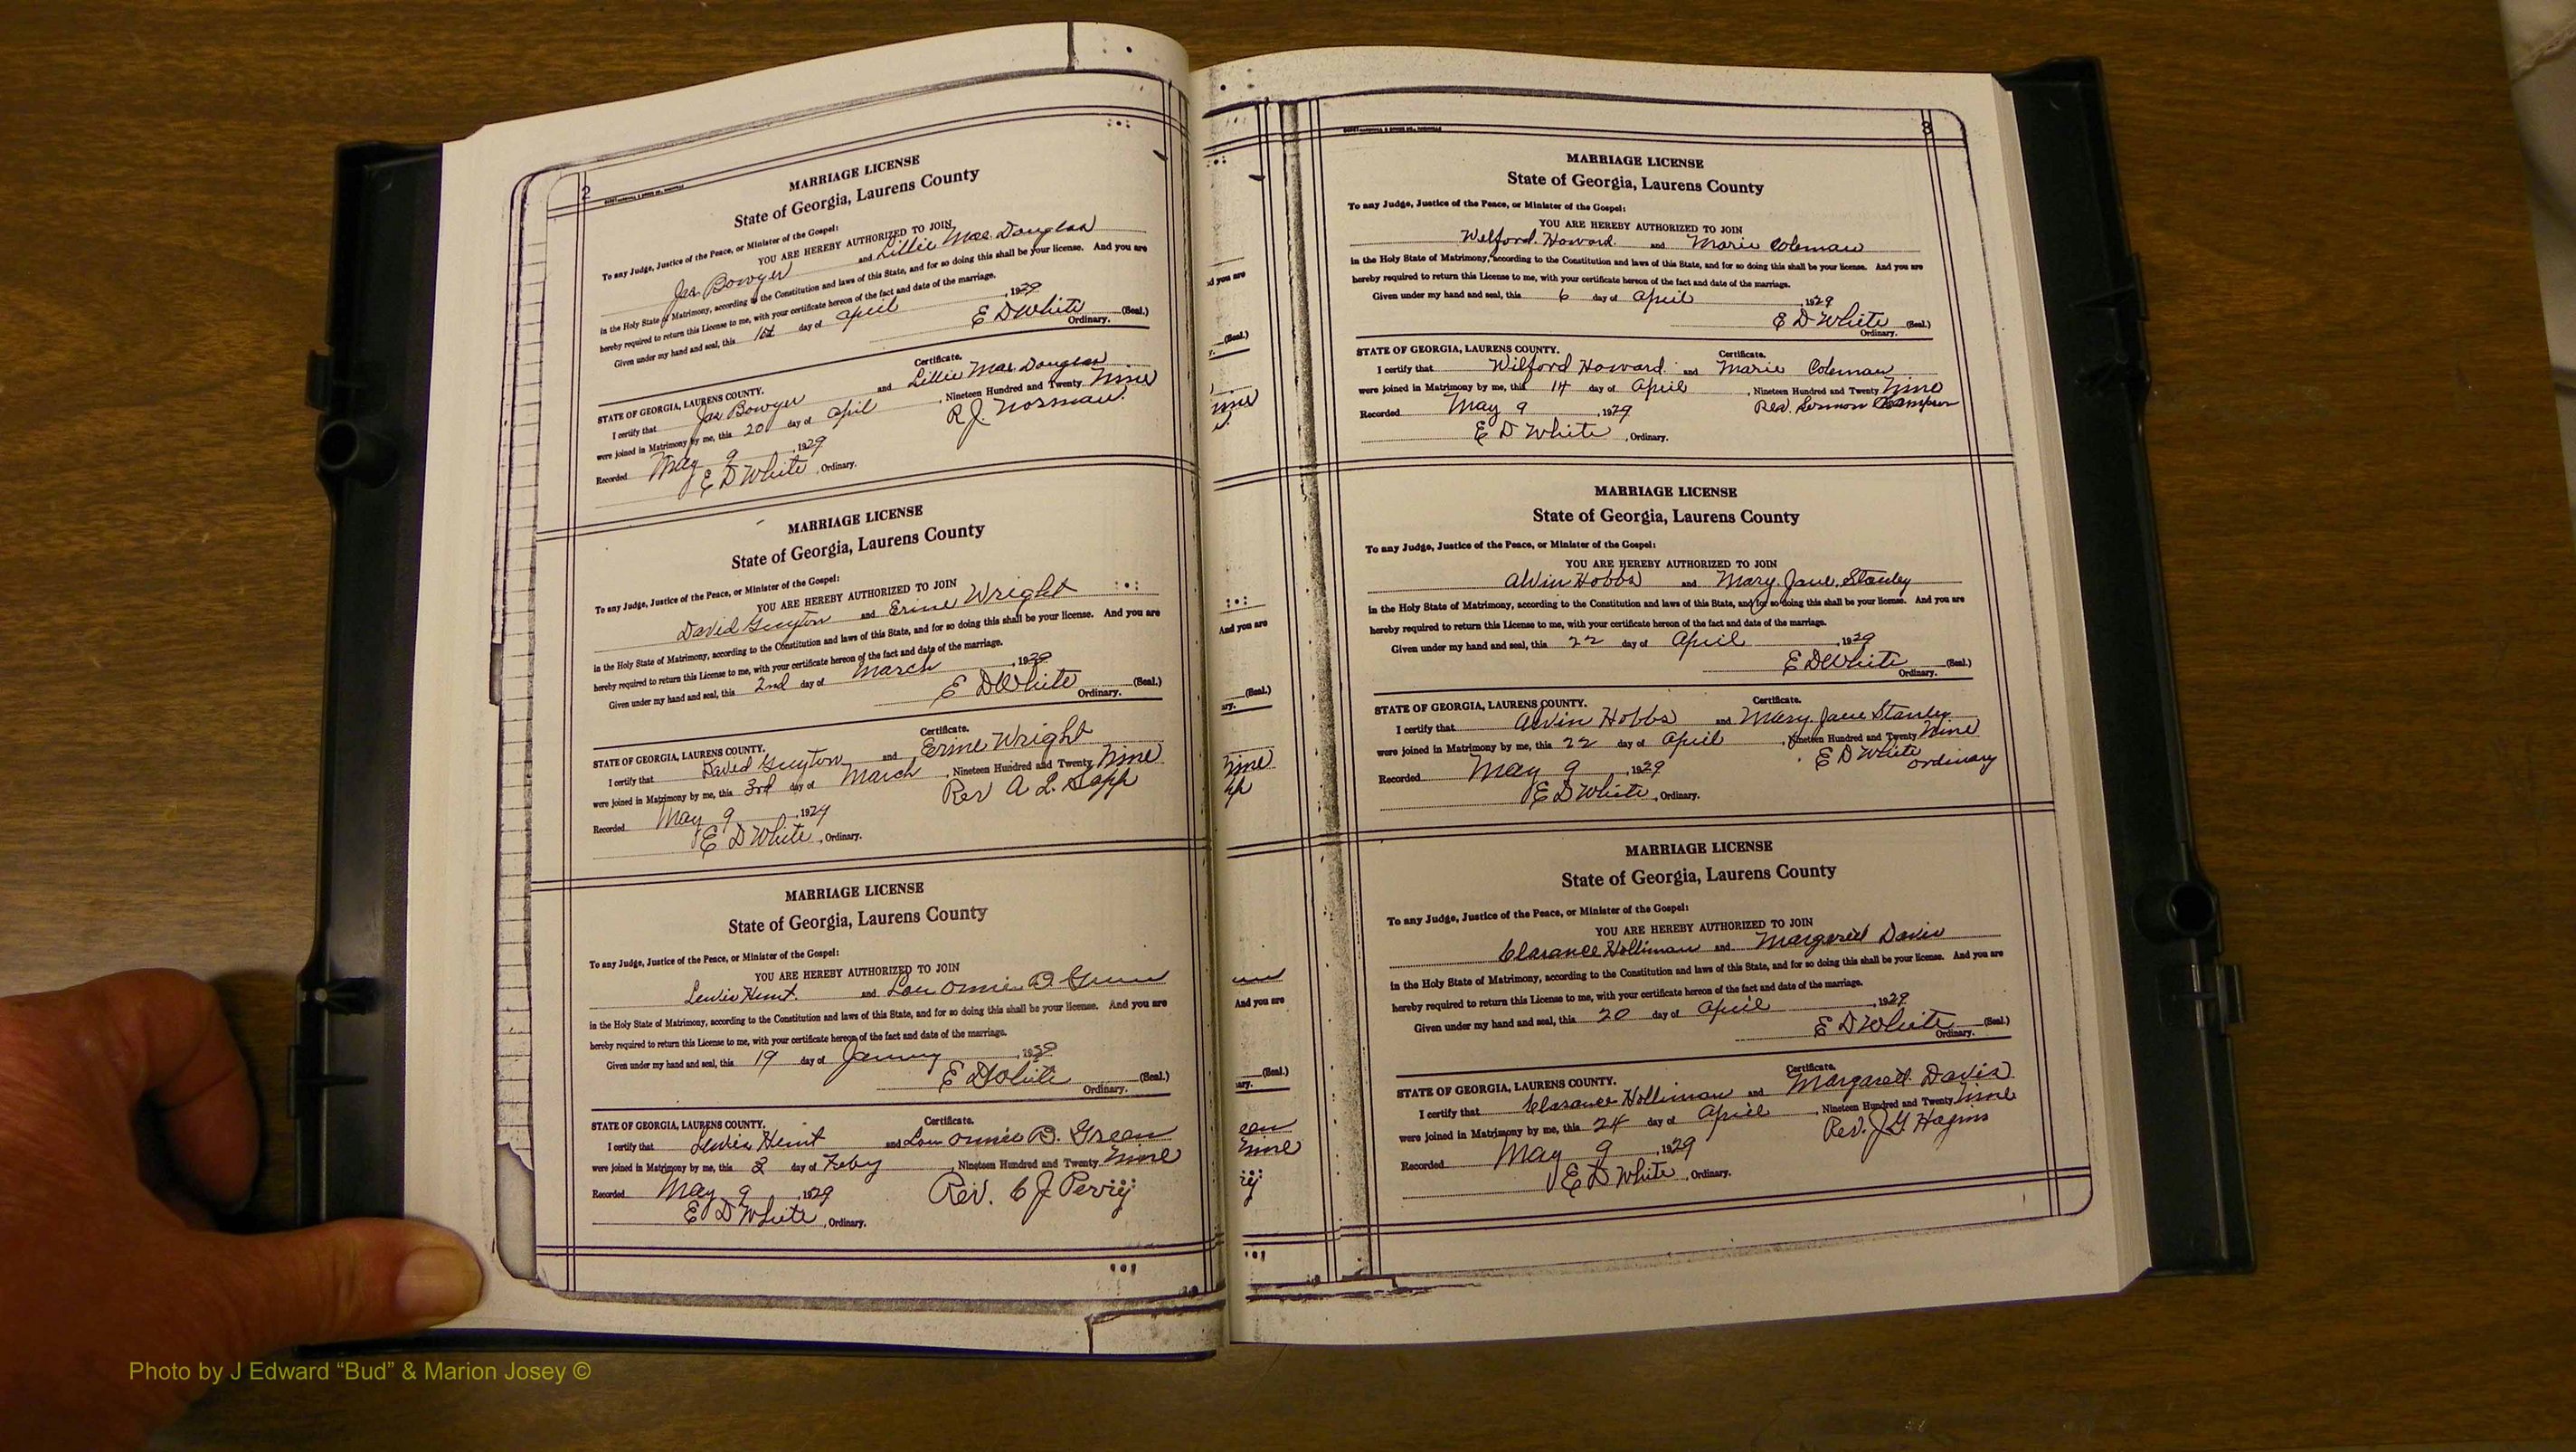 2
MARRIAGE LICENSE
State of Georgia, Laurens County
To any Judge, Justice of the Peace, or Minister of the Gospel:
YOU ARE HEREBY AUTHORIZED TO JOIN
Jas Bowyer and Lillie Mae Douglas
in the Holy State of Matrimony, according to the Constitution and laws of this State, and for so doing this shall be your license. And you are
hereby required to return this License to me, with your certificate hereon of the fact and date of the marriage.
Given under my hand and seal, this 1st day of April, 1929
E D White (Seal.)
Ordinary.
Certificate.
STATE OF GEORGIA, LAURENS COUNTY.
I certify that Jas Bowyer and Lillie Mae Douglas
were joined in Matrimony by me, this 20 day of April, Nineteen Hundred and Twenty Nine
R.J. Norman.
Recorded May 9, 1929
E D White, Ordinary.
MARRIAGE LICENSE
State of Georgia, Laurens County
To any Judge, Justice of the Peace, or Minister of the Gospel:
YOU ARE HEREBY AUTHORIZED TO JOIN
David Guyton and Erine Wright
in the Holy State of Matrimony, according to the Constitution and laws of this State, and for so doing this shall be your license. And you are
hereby required to return this License to me, with your certificate hereon of the fact and date of the marriage.
Given under my hand and seal, this 2nd day of March, 1929
E D White (Seal.)
Ordinary.
Certificate.
STATE OF GEORGIA, LAURENS COUNTY.
I certify that David Guyton and Erine Wright
were joined in Matrimony by me, this 3rd day of March, Nineteen Hundred and Twenty Nine
Rev A L. Sapp
Recorded May 9, 1929
E D White, Ordinary.
MARRIAGE LICENSE
State of Georgia, Laurens County
To any Judge, Justice of the Peace, or Minister of the Gospel:
YOU ARE HEREBY AUTHORIZED TO JOIN
Lewis Hunt. and Lou Onnie B. Green
in the Holy State of Matrimony, according to the Constitution and laws of this State, and for so doing this shall be your license. And you are
hereby required to return this License to me, with your certificate hereon of the fact and date of the marriage.
Given under my hand and seal, this 19 day of
E D White (Seal.)
Ordinary.
Certificate.
STATE OF GEORGIA, LAURENS COUNTY.
I certify that Lewis Hunt and Lou Onnie B. Green
were joined in Matrimony by me, this 2 day of Feby, Nineteen Hundred and Twenty Nine
Rev. C J.
Recorded May 9, 1929
E D White, Ordinary.
3
MARRIAGE LICENSE
State of Georgia, Laurens County
To any Judge, Justice of the Peace, or Minister of the Gospel:
YOU ARE HEREBY AUTHORIZED TO JOIN
Welford Howard and Marie Coleman
in the Holy State of Matrimony, according to the Constitution and laws of this State, and for so doing this shall be your license. And you are
hereby required to return this License to me, with your certificate hereon of the fact and date of the marriage.
Given under my hand and seal, this 6 day of April, 1929
E D White (Seal.)
Ordinary.
Certificate.
STATE OF GEORGIA, LAURENS COUNTY.
I certify that Wilford Howard and Marie Coleman
were joined in Matrimony by me, this 14 day of April, Nineteen Hundred and Twenty Nine
Rev.
Recorded May 9, 1929
E D White, Ordinary.
MARRIAGE LICENSE
State of Georgia, Laurens County
To any Judge, Justice of the Peace, or Minister of the Gospel:
YOU ARE HEREBY AUTHORIZED TO JOIN
Alvin Hobbs and Mary Jane Stanley
in the Holy State of Matrimony, according to the Constitution and laws of this State, and for so doing this shall be your license. And you are
hereby required to return this License to me, with your certificate hereon of the fact and date of the marriage.
Given under my hand and seal, this 22 day of April, 1929
E D White (Seal.)
Ordinary.
Certificate.
STATE OF GEORGIA, LAURENS COUNTY.
I certify that Alvin Hobbs and Mary Jane Stanley
were joined in Matrimony by me, this 22 day of April, Nineteen Hundred and Twenty Nine
E D White
Ordinary
Recorded May 9, 1929
E D White, Ordinary.
MARRIAGE LICENSE
State of Georgia, Laurens County
To any Judge, Justice of the Peace, or Minister of the Gospel:
YOU ARE HEREBY AUTHORIZED TO JOIN
Clarance Holliman and Margarett Davis
in the Holy State of Matrimony, according to the Constitution and laws of this State, and for so doing this shall be your license. And you are
hereby required to return this License to me, with your certificate hereon of the fact and date of the marriage.
Given under my hand and seal, this 20 day of April, 1929
E D White (Seal.)
Ordinary.
Certificate.
STATE OF GEORGIA, LAURENS COUNTY.
I certify that Clarance Holliman and Margarett Davis
were joined in Matrimony by me, this 24 day of April, Nineteen Hundred and Twenty Nine
Rev. J G Hagins
Recorded May 9, 1929
E D White, Ordinary.
Photo by J Edward “Bud” & Marion Josey ©